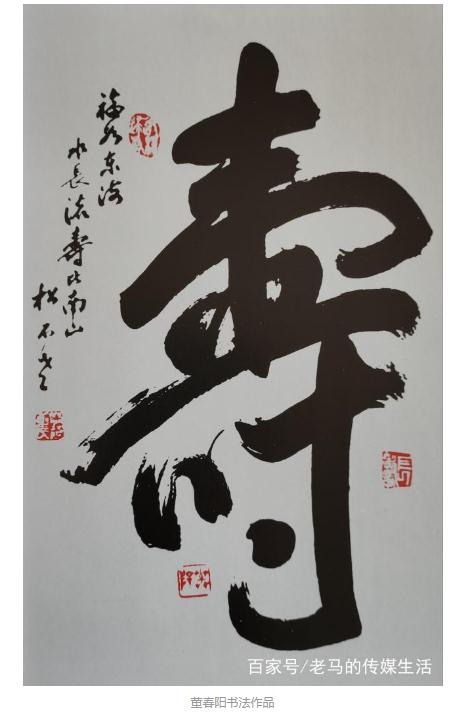 壽
福如东海
水長流壽比南山
松不老
百家号/老马的传媒生活
董春阳书法作品